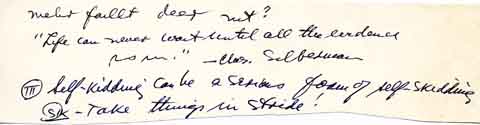 mehr fällt dear nut?
"Life can never wait until all the evidence
is in!" — Chas. Silberman
III Self-kidding can be a serious form of self-skidding
SK - Take things in stride!